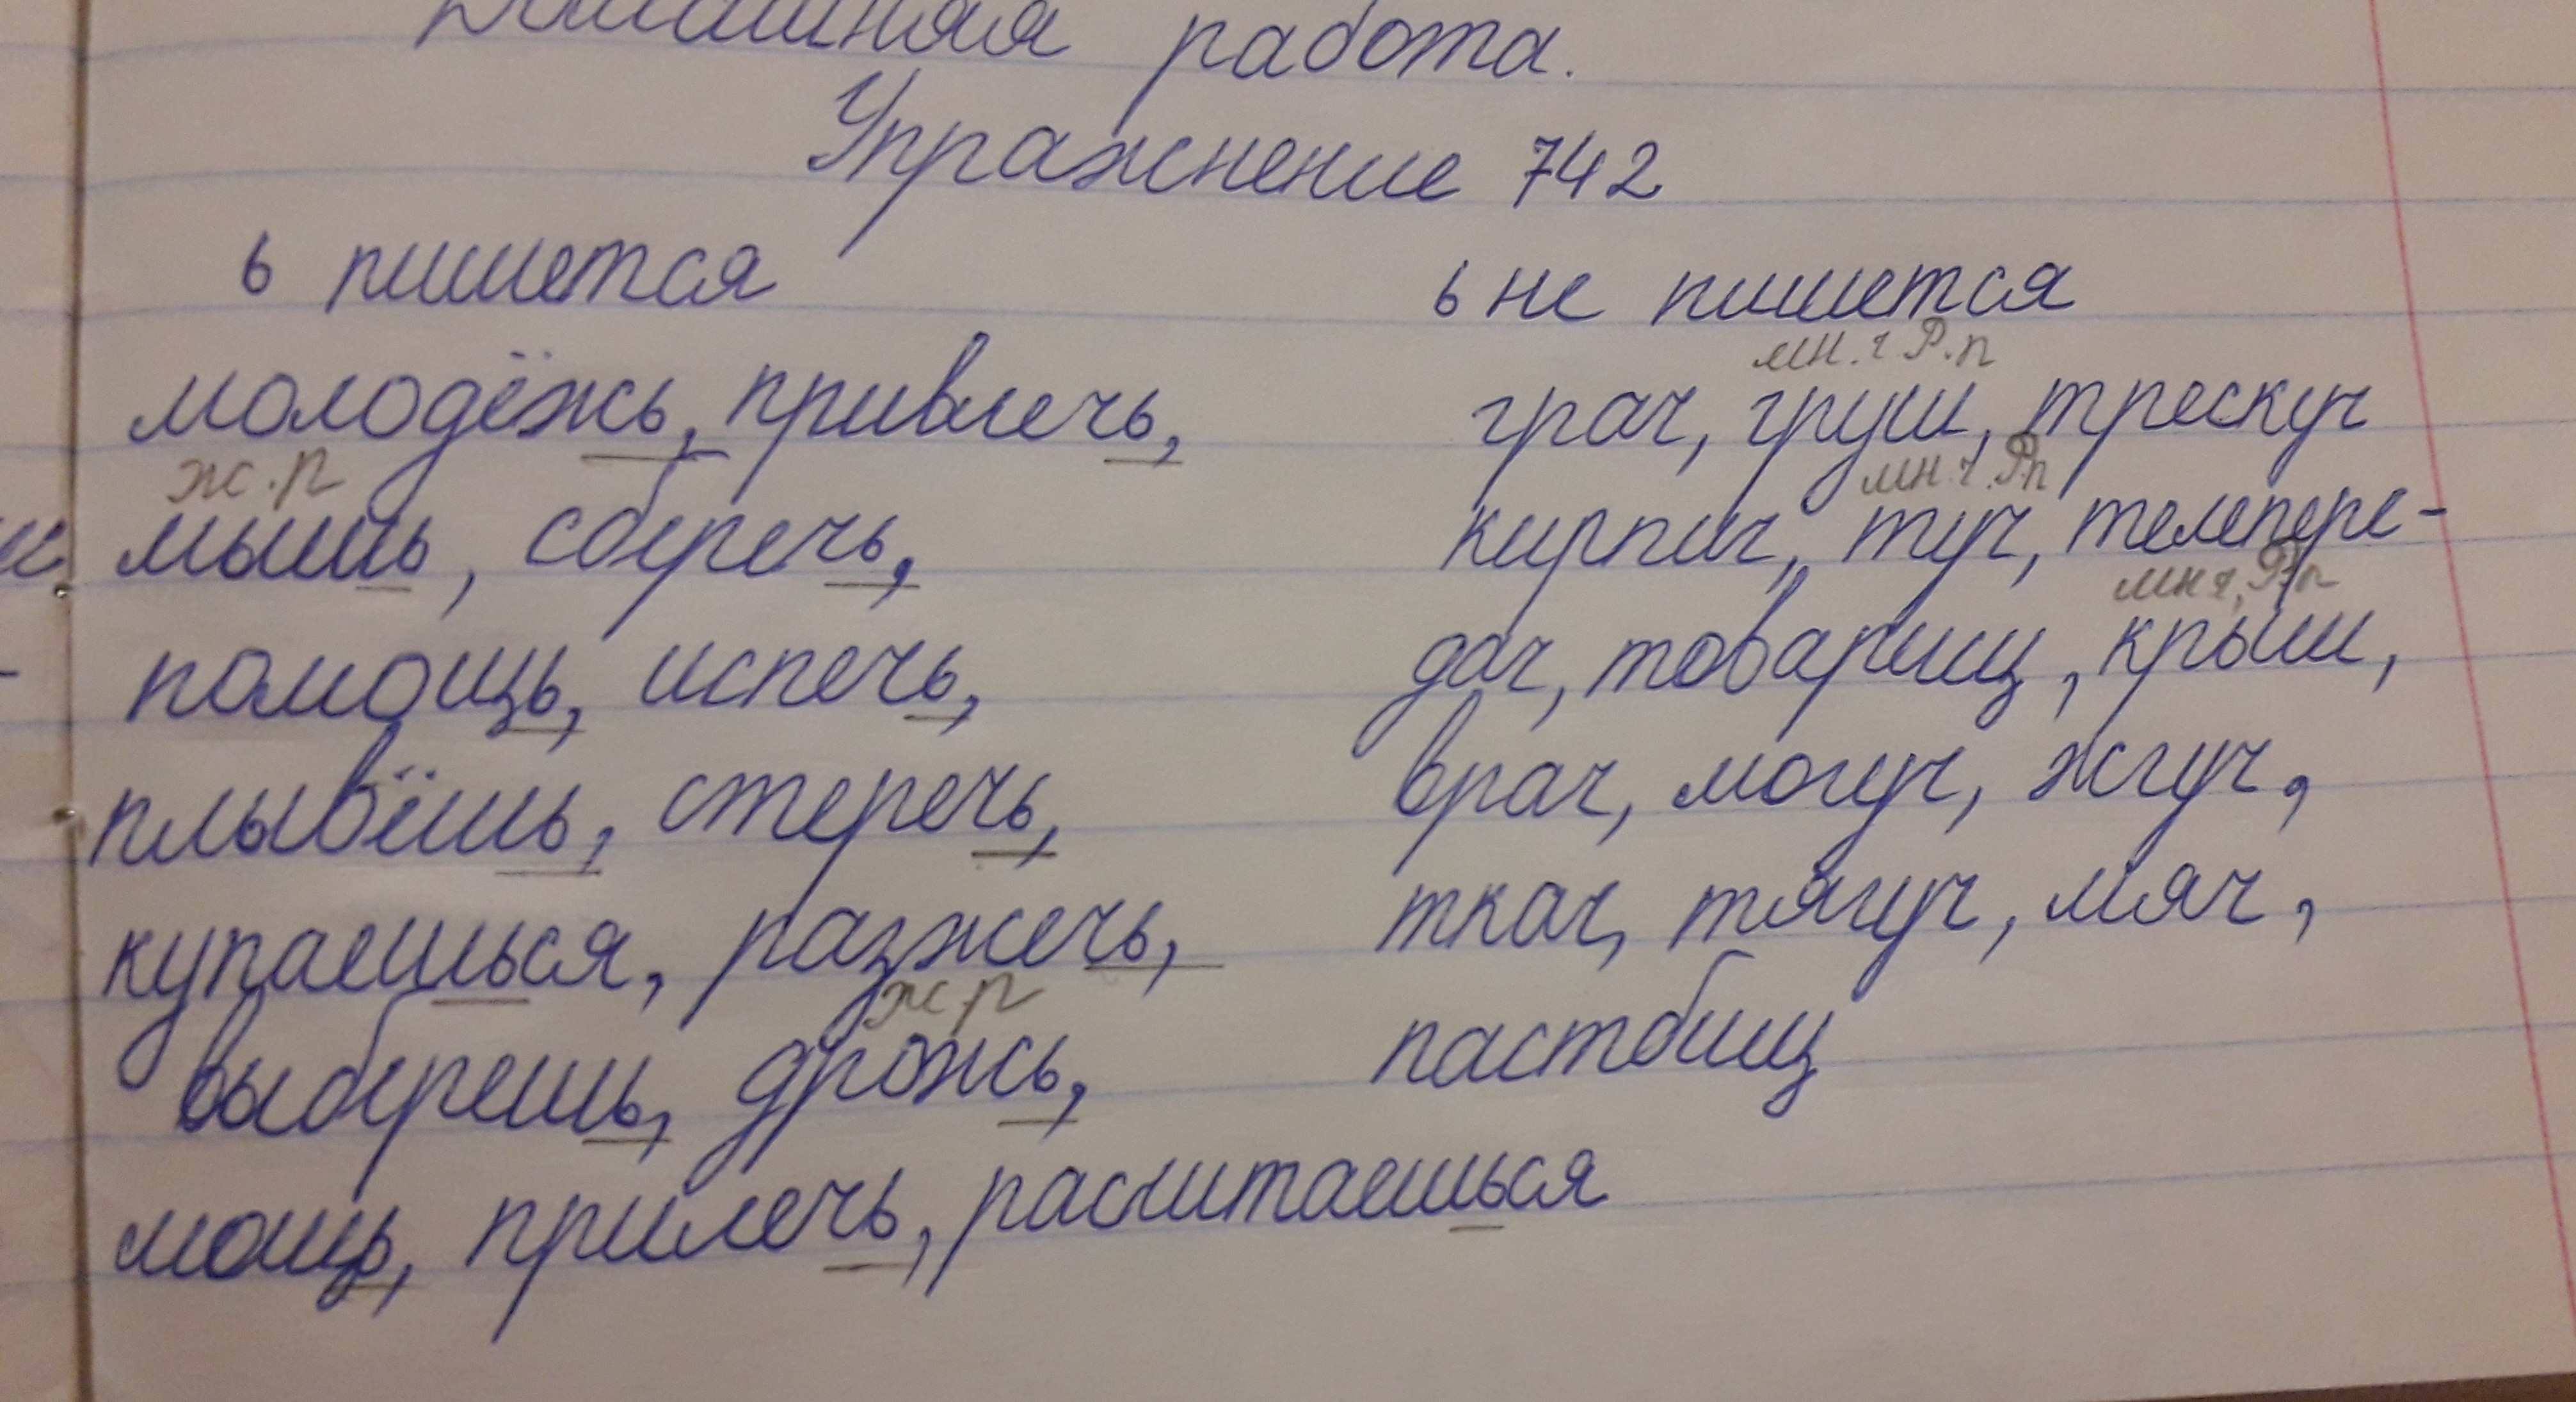 Домашняя работа.
Упражнение 742
ь пишется
молодёжь, привлечь,
ж.р
мышь, сберечь,
помощь, испечь,
плывёшь, стеречь,
купаешься, разжечь,
ж р
выберешь, дрожь,
мощь, прилечь, расчитаешься
ь не пишется
мн.ч Р.п
грач, груш, трескуч
мн.ч. Рп
кирпич, туч, телепере-
мн ч, Р.п
дач, товарищ, крыш,
врач, могуч, жгуч,
ткач, тягуч, мяч,
пастбищ